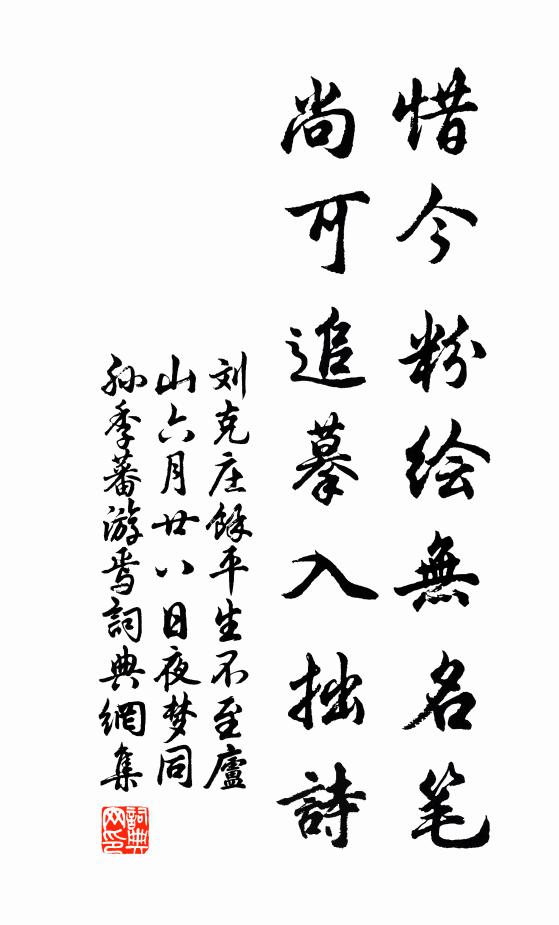 惜今粉绘無名笔
尚可追摹入拙詩
刘克庄餘平生不至廬
山六月廿八日夜梦同
孙季蕃游焉詞典網集
詞典
网印